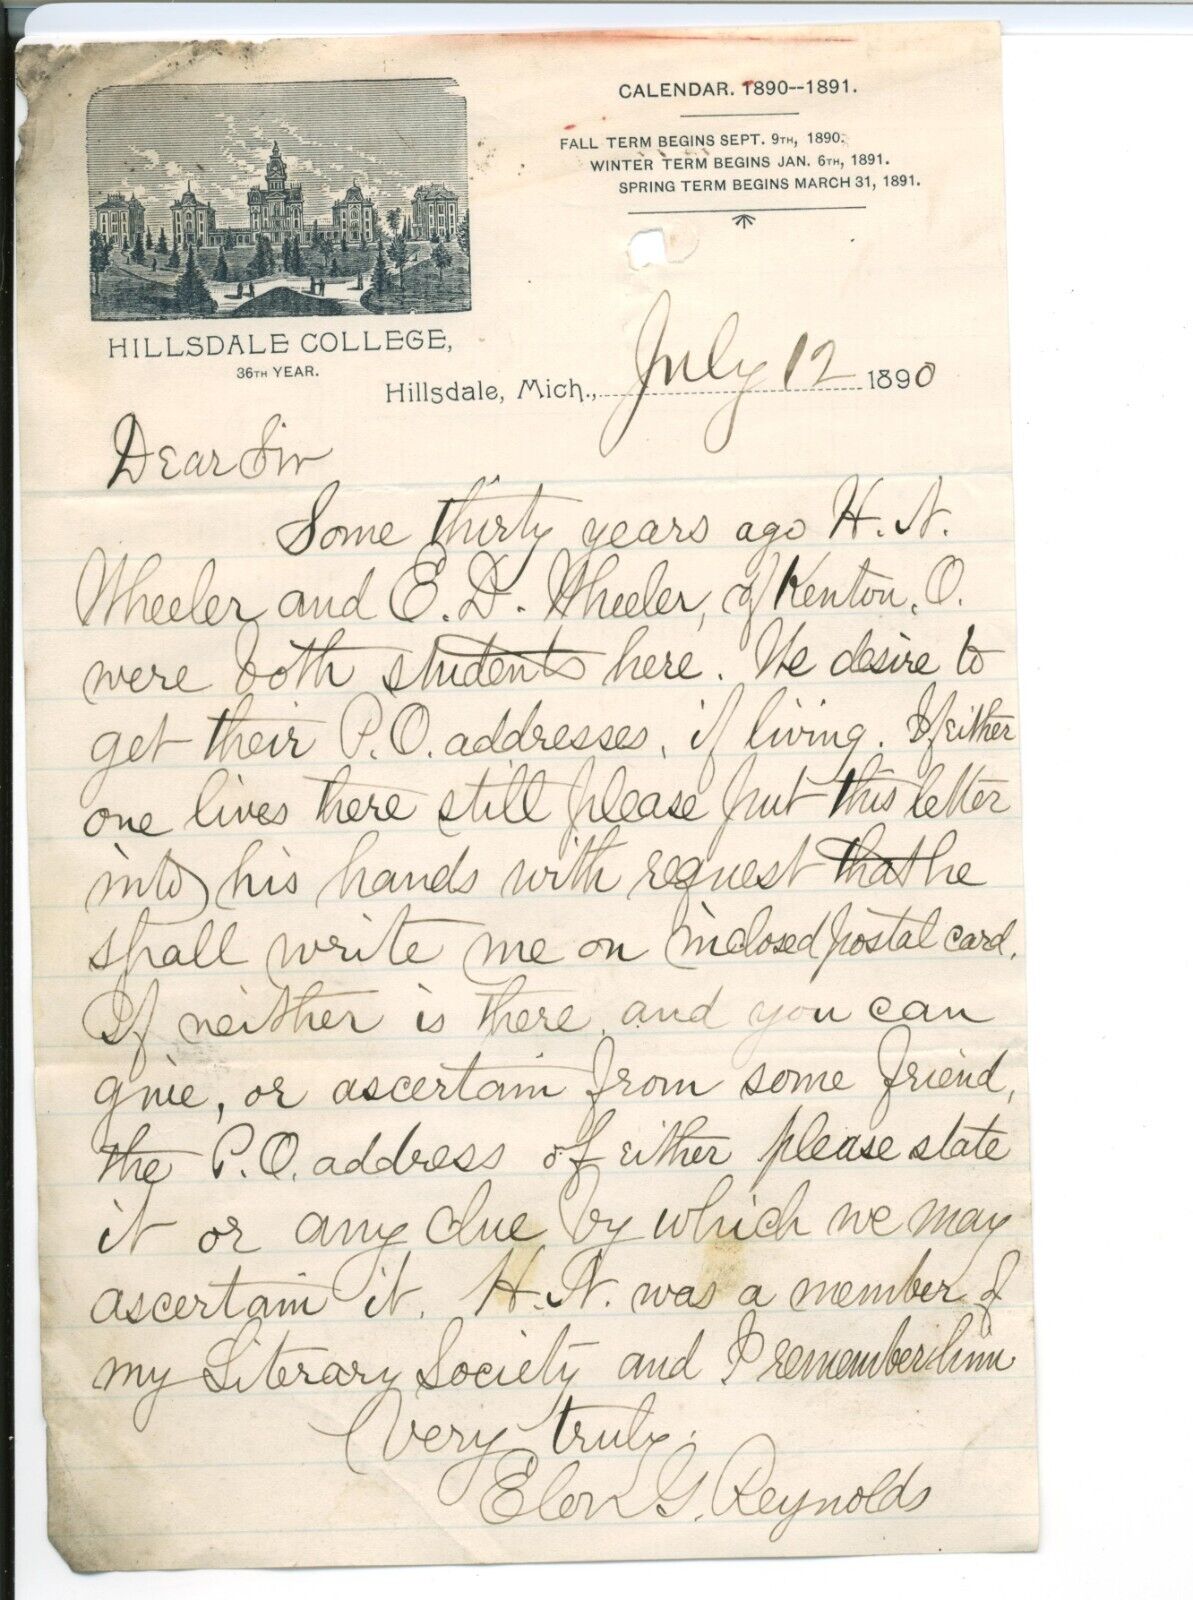 CALENDAR. 1890--1891.
FALL TERM BEGINS SEPT. 9TH, 1890.
WINTER TERM BEGINS JAN. 6TH, 1891.
SPRING TERM BEGINS MARCH 31, 1891.
HILLSDALE COLLEGE,
36TH YEAR.
Hillsdale, Mich., July 12 1890
Dear Sir
Some thirty years ago H. N.
Wheeler and E. D. Wheeler, of Kenton, O.
were both students here. We desire to
get their P.O. addresses, if living. If either
one lives there still please put this letter
into his hands with request that he
shall write me on inclosed postal card.
If neither is there, and you can
give, or ascertain from some friend,
the P.O. address of either please state
it or any clue by which we may
ascertain it. H. N. was a member of
my Literary Society and I remember him
Very truly.
Elon G. Reynolds